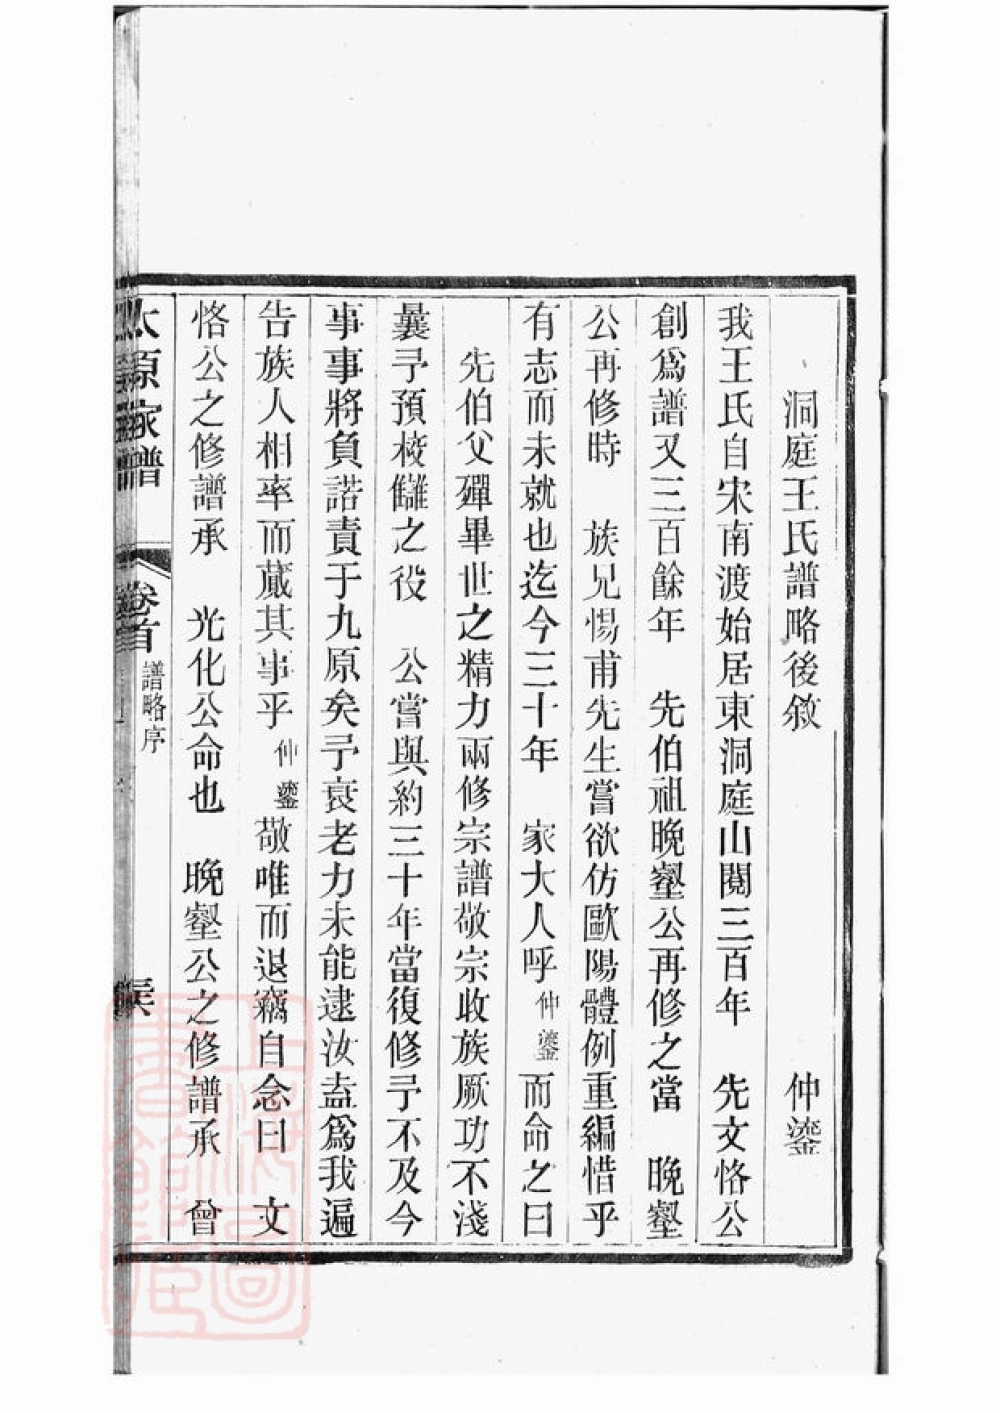 洞庭王氏譜略後敘　仲鎏
我王氏自宋南渡始居東洞庭山閱三百年　先文恪公
創爲譜又三百餘年　先伯祖晚壑公再修之當　晚壑
公再修時　族兄惕甫先生嘗欲仿歐陽體例重編惜乎
有志而未就也迄今三十年　家大人呼仲鎏而命之曰
先伯父殫畢世之精力兩修宗譜敬宗收族厥功不淺
曩予預校讎之役　公嘗與約三十年當復修予不及今
事事將負諾責于九原矣予衰老力未能逮汝盍爲我遍
告族人相率而蕆其事乎仲鎏敬唯而退竊自念曰　文
恪公之修譜承　光化公命也　晚壑公之修譜承　曾
太原家譜　卷首　譜略序